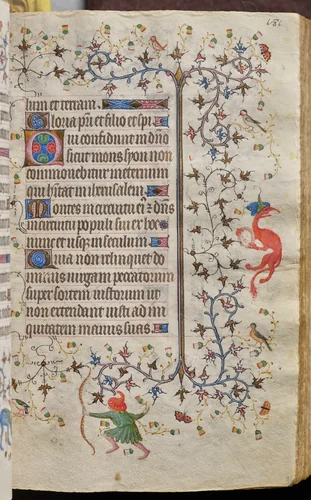 lum et terram.
Gloria pri et filio et spi
Qui confidunt in dno
sicut mons syon non
commouebitur in eternum
qui hitat in ihrusalem
Montes in circuitu eius et dns
in circuitu populi sui ex hoc
nunc et usqz in seculum
Quia non relinquet do
minus uirgam peccatorum
super sortem iustorum ut
non extendant iusti ad ini
quitatem manus suas